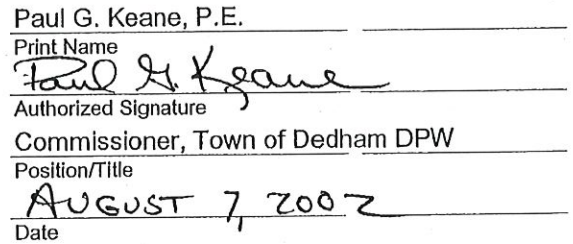 Paul G. Keane, P.E.
Print Name
Paul G. Keane
Authorized Signature
Commissioner, Town of Dedham DPW
Position/Title
AUGUST 7, 2002
Date